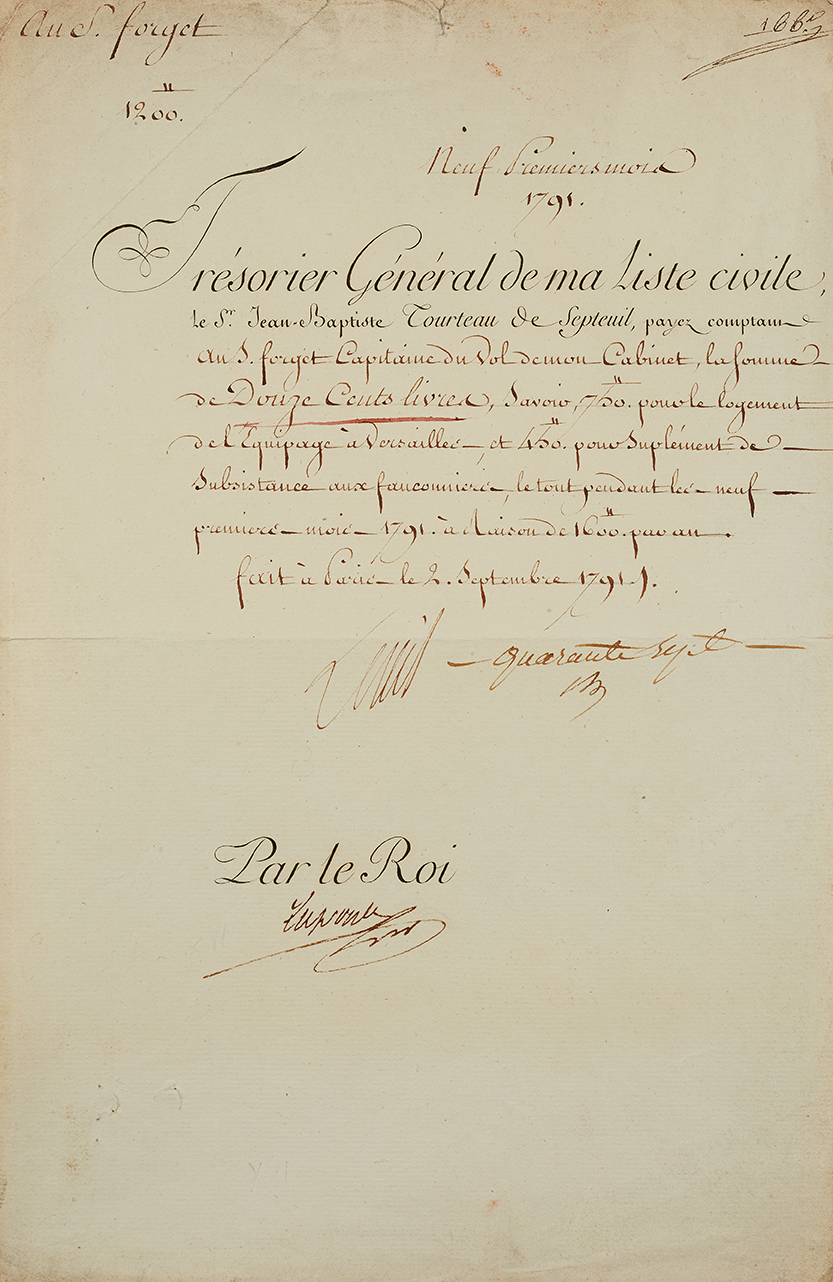 Au S. forget
166.
1200.
Neuf Premiers mois
1791.
Trésorier Général de ma Liste civile,
le Sr. Jean-Baptiste Tourteau de Septeuil, payez comptant
Au S. forget Capitaine du Vol de mon Cabinet, la somme
de Douze Cents livres, Savoir, 750. pour le logement
de l'Equipage à Versailles, et 450. pour Suplément de
Subsistance aux fauconniers, le tout pendant les neuf
premiers mois 1791. à Raison de 1600. par an.
fait à Paris le 2. Septembre 1791.
Louis
quarante sept
Par le Roi
Laporte